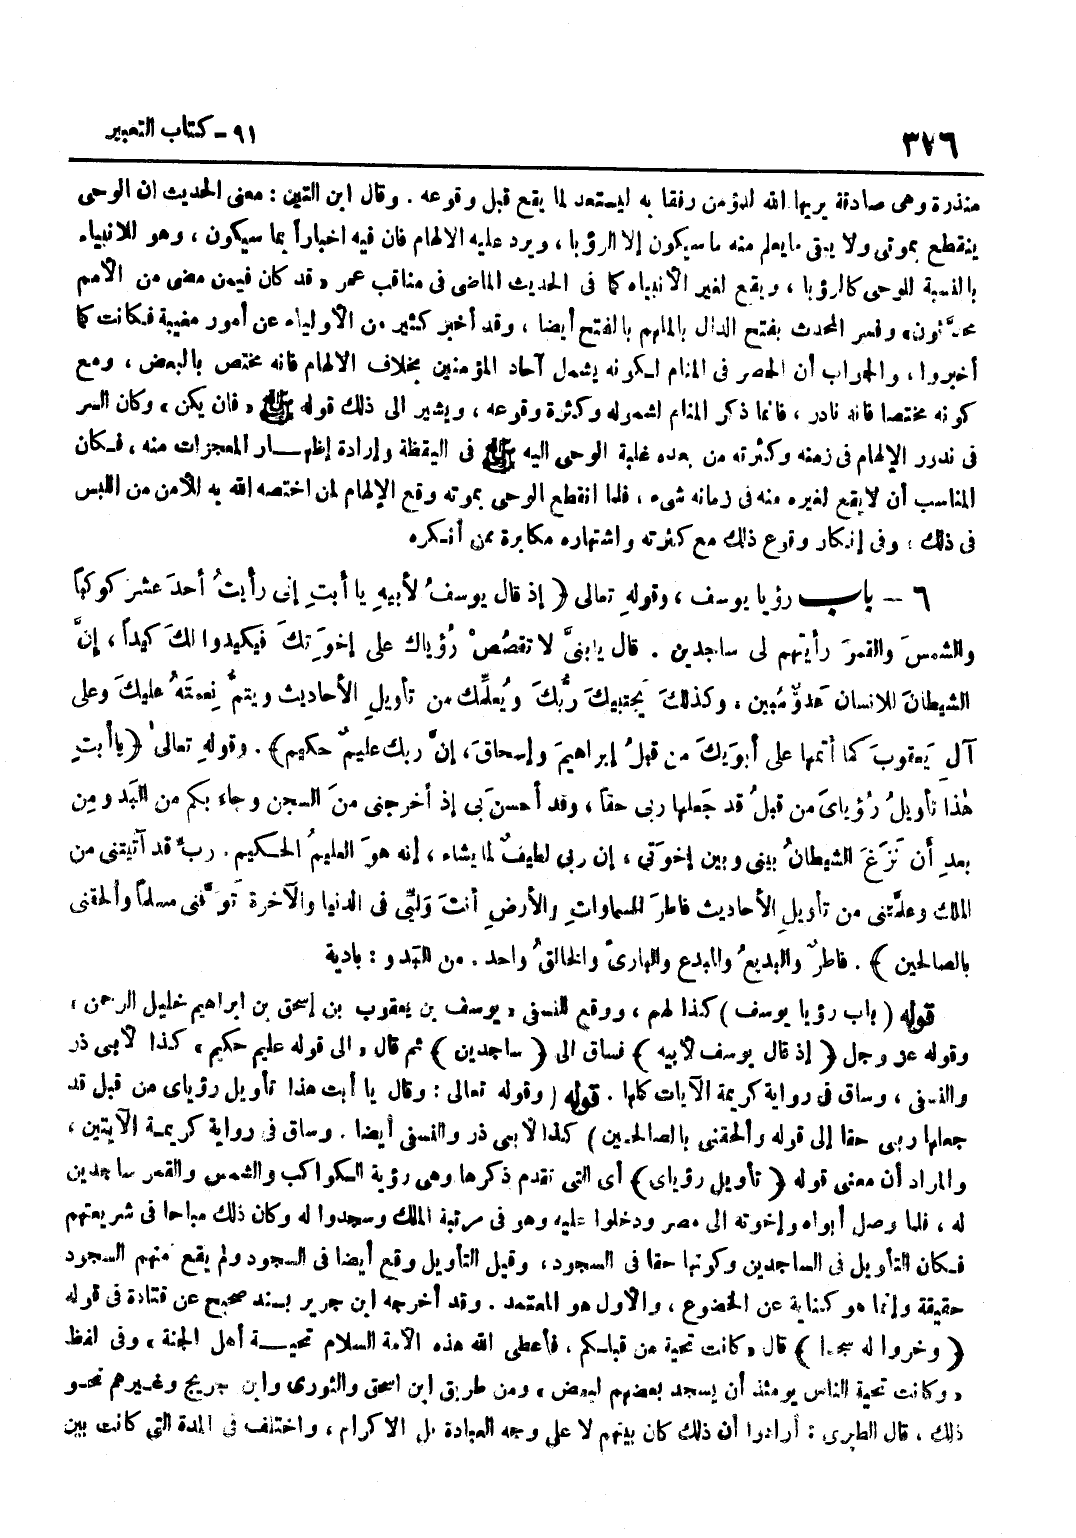 ٣٧٦
٩١ - كتاب التعبير
منذرة وهى صادقة يريها الله للمؤمن رفقا به ليستعد لما يقع قبل وقوعه . وقال ابن التين : معنى الحديث ان الوحى
ينقطع بموتى ولا يبقى ما يعلم منه ما سيكون إلا الرؤيا ، ويرد عليه الالهام فان فيه اخباراً بما سيكون ، وهو للانبياء
بالنسبة للوحى كالرؤيا ، ويقع لغير الأنبياء كما فى الحديث الماضى فى مناقب عمر « قد كان فيمن مضى من الأمم
محدَّثون » وفسر المحدث بفتح الدال بالملهم بالفتح أيضا ، وقد أخبر كثير من الأولياء عن أمور مغيبة فكانت كما
أخبروا ، والجواب أن الحصر فى المنام لكونه يشمل آحاد المؤمنين بخلاف الالهام فانه مختص بالبعض ، ومع
كونه مختصا فانه نادر ، فانما ذكر المنام لشموله وكثرة وقوعه ، ويشير الى ذلك قوله ﷺ « فان يكن » وكان السر
فى ندور الإلهام فى زمنه وكثرته من بعده غلبة الوحى اليه ﷺ فى اليقظة وإرادة إظهـــار المعجزات منه ، فكان
المناسب أن لا يقع لغيره منه فى زمانه شىء ، فلما انقطع الوحى بموته وقع الإلهام لمن اختصه الله به للأمن من اللبس
فى ذلك ، وفى إنكار وقوع ذلك مع كثرته واشتهاره مكابرة ممن أنكره
٦ — باب رؤيا يوسف ، وقولهِ تعالى ﴿ إذ قال يوسفُ لأبيهِ يا أبتِ إنى رأيتُ أحدَ عشرَ كوكباً
والشمسَ والقمرَ رأيتهم لى ساجدين . قال يا بنىَّ لا تقصُصْ رُؤياك على إخوَتكَ فيكيدوا لكَ كيداً ، إنَّ
الشيطانَ للانسان عَدوٌّ مُبين . وكذلكَ يَجتبيكَ ربُّكَ ويُعلِّمك من تأويلِ الأحاديث ويتمُّ نِعمتَهُ عليكَ وعلى
آلِ يَعقوبَ كما أتمها على أبوَيكَ من قبلُ إبراهيمَ وإسحاقَ، إنَّ ربك عليمٌ حكيم ﴾ . وقولهِ تعالىٰ ﴿ يا أبتِ
هٰذا تأويلُ رُؤياىَ من قبلُ قد جَعلها ربى حقاً ، وقد أحسنَ بى إذ أخرجنى منَ السجن وجاء بكم من البَدو مِن
بعدِ أن نَزَغَ الشيطانُ بينى وبين إخوَتى ، إن ربى لطيفٌ لما يشاء ، إنه هوَ العليمُ الحكيم . ربِّ قد آتيتنى من
الملك وعلمَّتنى من تأويلِ الأحاديث فاطرَ السماواتِ والأرضِ أنتَ وَليِّى فى الدنيا والآخرة تَوفَّنى مسلماً وألحقنى
بالصالحين ﴾ . فاطرٌ والبديعُ والمبدع والبارئُ والخالقُ واحد . من البَدو : بادية
قوله ( باب رؤيا يوسف ) كذا لهم ، ووقع للنسفى « يوسف بن يعقوب بن إسحق بن ابراهيم خليل الرحمن ،
وقوله عز وجل ﴿ إذ قال يوسف لأبيه ﴾ فساق الى ﴿ ساجدين ﴾ ثم قال « الى قوله عليم حكيم » كذا لأبى ذر
والنسفى ، وساق فى رواية كريمة الآيات كلها . قوله ( وقوله تعالى : وقال يا أبت هذا تأويل رؤياى من قبل قد
جعلها ربى حقا إلى قوله وألحقنى بالصالحين ) كذا لأبى ذر والنسفى أيضا . وساق فى رواية كريمـة الآيتين ،
والمراد أن معنى قوله ﴿ تأويل رؤياى ﴾ أى التى تقدم ذكرها وهى رؤية الكواكب والشمس والقمر ساجدين
له ، فلما وصل أبواه وإخوته الى مصر ودخلوا عليه وهو فى مرتبة الملك وسجدوا له وكان ذلك مباحا فى شريعتهم
فكان التأويل فى الساجدين وكونها حقا فى السجود ، وقيل التأويل وقع أيضا فى السجود ولم يقع منهم السجود
حقيقة وإنما هو كناية عن الخضوع ، والأول هو المعتمد . وقد أخرجه ابن جرير بسند صحيح عن قتادة فى قوله
﴿ وخروا له سجدا ﴾ قال « كانت تحية من قبلكم ، فأعطى الله هذه الأمة السلام تحيـــة أهل الجنة » وفى لفظ
« وكانت تحية الناس يومئذ أن يسجد بعضهم لبعض » ومن طريق ابن اسحق والثورى وابن جريج وغيرهم نحـو
ذلك ، قال الطبرى : أرادوا أن ذلك كان بينهم لا على وجه العبادة بل الاكرام ، واختلف فى المدة التى كانت بين